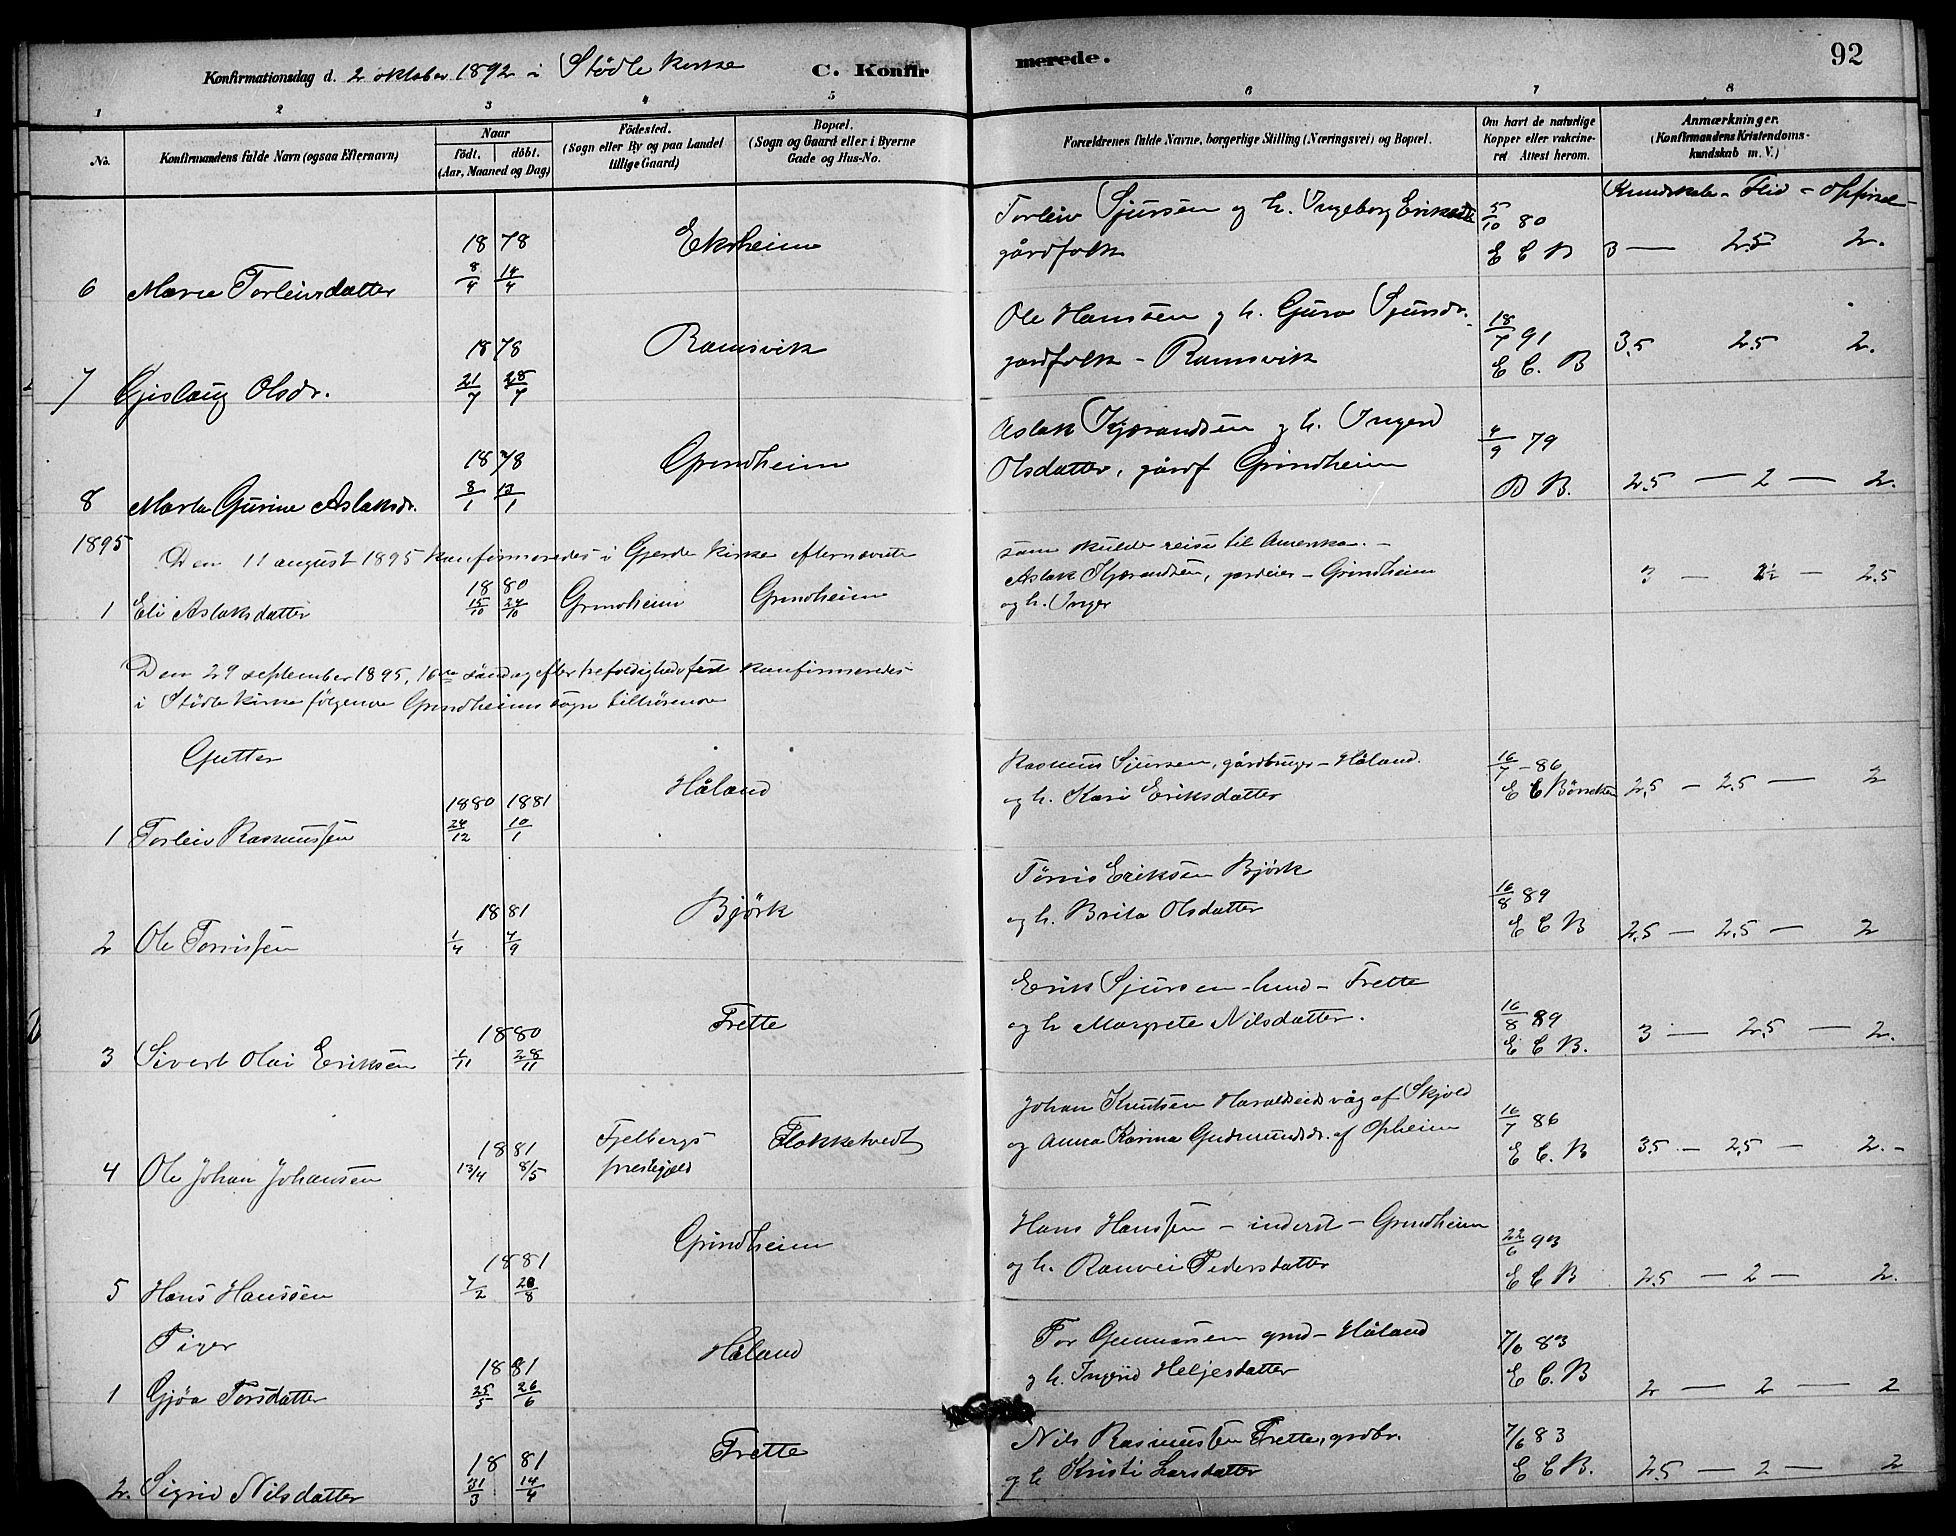 Konfirmationsdag d. 2 oktober 1892 i Stödle kirke C. Konfirmerede. 92
1 2 3 4 5 6 7 8
No. Konfirmandens fulde Navn (ogsaa Efternavn)
Naar födt. döbt. (Aar, Maaned og Dag)
Födested. (Sogn eller By og paa Landet tillige Gaard)
Bopæl. (Sogn og Gaard eller i Byerne Gade og Hus-No.
Forældrenes fulde Navne, borgerlige Stilling (Næringsvei) og Bopæl.
Om havt de naturlige Kopper eller vakcineret Attest herom.
Anmærkninger. (Konfirmandens Kristendomskundskab m. V.)
Kundskab - Flid - Opförsel
6 Marie Torleivsdatter 1878 8/4 14/4 Ekrheim Torleiv Sjursen og h. Ingeborg Eriksdtr gårdfolk 5/10 80 E C B 3 — 2.5 2.
7 Gislaug Olsdr. 1878 21/7 28/7 Ramsvik Ole Hanssen g h. Guro Sjursdr. gardfolk - Ramsvik 18/7 91 E C. B 3.5 2.5 2.
8 Marta Gurine Aslaksdr. 1878 8/1 13/1 Grindheim Aslak Kjærandsen g h. Ingerd Olsdatter, gårdf Grindheim 4/9 79 B B. 2.5 — 2 — 2.
1895 Den 11 august 1895 konfirmeredes i Gjerde kirke efternævnte som skulde reise til Amerika. -
1 Eli Aslaksdatter 1880 15/10 24/10 Grindheim Grindheim Aslak Kjærandsen, gardeier - Grindheim og h. Inger 3 — 2½ — 2.5
Den 29 september 1895, 16de søndag efter trefoldighedsfest konfirmeredes
i Stödle kirke følgende Grindheims sogn tilhørende
Gutter
1 Torleiv Rasmussen 1880 1881 24/12 10/1 Håland Rasmus Sjursen, gårdbruger - Håland. og h. Kari Eriksdatter 16/7 - 86 E C 2.5 — 2.5 — 2
2 Ole Tørrissen 1881 1/4 4/9 Björk Tørris Eriksen Björk og h. Brita Olsdatter 16/8 89 E C B 2.5 — 2.5 — 2
3 Sivert Olai Eriksen 1880 1/11 28/11 Frette Erik Sjursen - husd - Frette og h Margrete Nilsdatter. 16/8 89 E C B. 3 — 2.5 — 2.
4 Ole Johan Johansen 1881 13/4 8/5 Fjelbergs prestegjeld Flokketvedt Johan Knutsen Haraldseidsvåg af Skjold og Anna Karina Gudmundsdr. af Opheim 16/7 86 E C. B 3.5 — 2.5 — 2. -
5 Hans Hanssen 1881 7/2 28/8 Grindheim Hans Hanssen - inderst - Grindheim og h. Ranvei Pedersdatter 22/6 93 E C B 2.5 — 2 — 2.
Piger
1 Gjøa Torsdatter 1881 25/5 26/6 Håland Tor Gunnarsen - Håland g h. Ingrid Heljesdatter 7/6 83 E C. B 2 — 2 — 2
2. Sigrid Nilsdatter 1881 31/3 14/4 Frette Nils Rasmussen Frette, grdbr. og h Kristi Larsdatter 7/6 83 E C B. 2.5 — 2 — 2